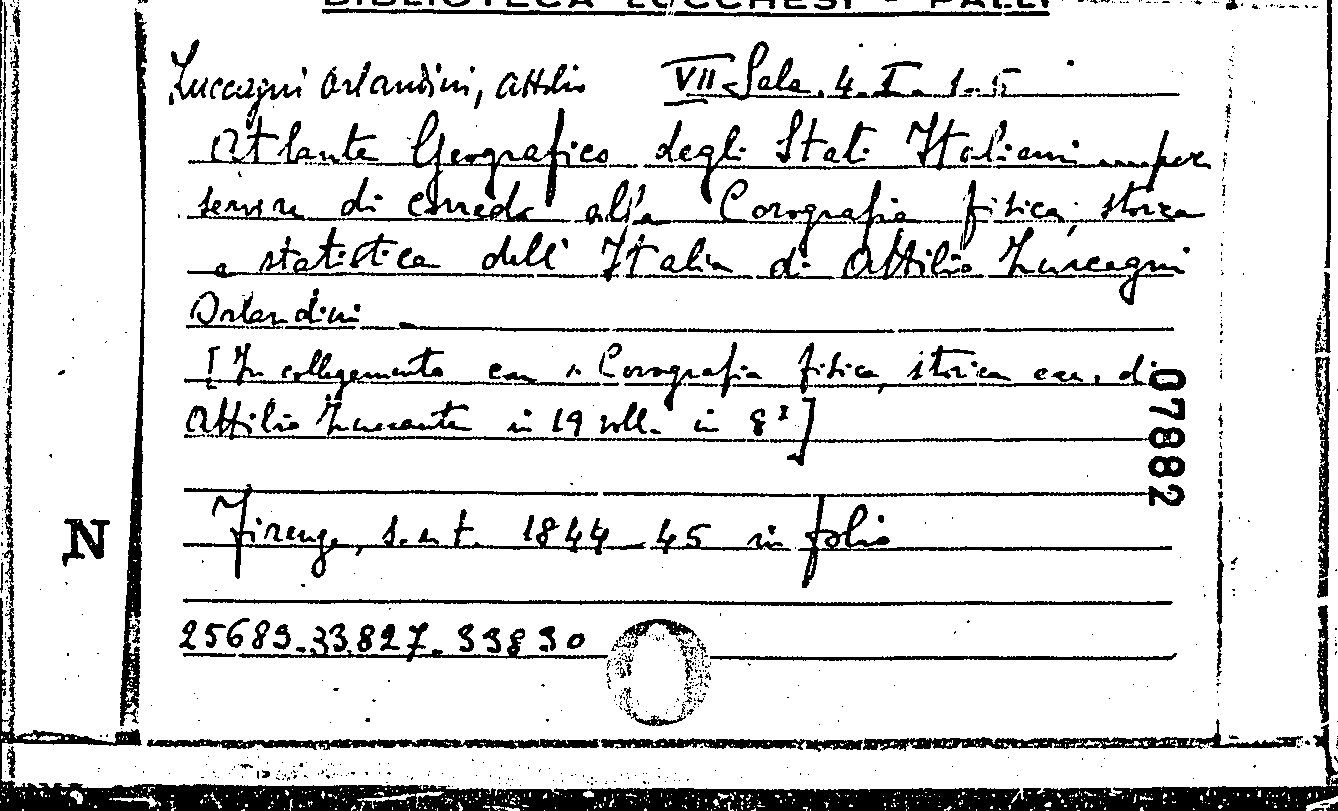 BIBLIOTECA LUCCHESI - PALLI
Zuccagni Orlandini, Attilio VII Sala. 4. I. 1-5
Atlante Geografico degli Stati Italiani per
servire di corredo alla Corografia fisica, storica
e statistica dell' Italia di Attilio Zuccagni
Orlandini
[In collegamento con "Corografia fisica, storica ecc. di
Attilio in 19 voll. in 8º]
07882
N
Firenze, s.n.t. 1844-45 in folio
25689-33827-33830